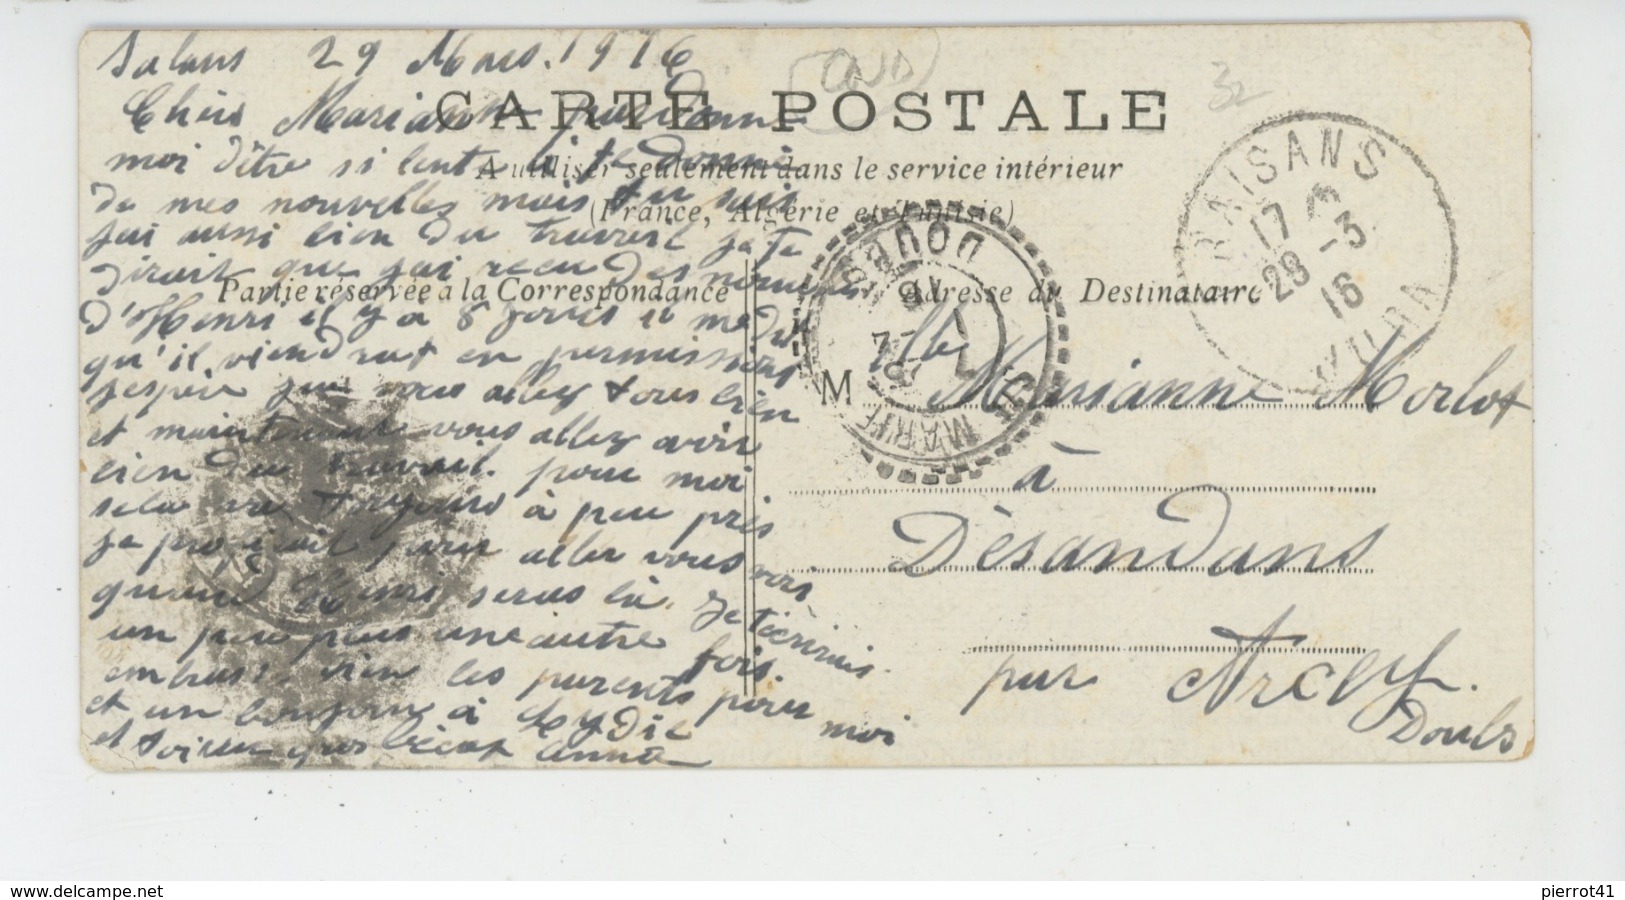 Salans 29 Mars. 1916
CARTE POSTALE
A utiliser seulement dans le service intérieur
(France, Algérie et Tunisie)
Partie réservée à la Correspondance
Adresse du Destinataire
Chère Marianne pardonne
moi d'être si lente à te donné
de mes nouvelles mais tu sais
jai aussi bien du travail je te
dirait que jai recu des nouvelles
d'Henri il y a 8 jours il me dit
qu'il viendrat en permission
jespère que vous allez tous bien
et maintenant vous allez avoir
bien du travail. pour moi
sela va toujours à peu près
je projetait pour aller vous voir
quand Henri seras là. je t'écrirais
un peu plus une autre fois.
embrasse bien les parents pour moi
et un bonjour à Lydie
et toi un gros bécot anna
M lle Marianne Morlot
à
Désandans
par Arcey.
Doubs
RAISANS
17
28 -3
16
JURA
DOUBS
MARIE
32
www.delcampe.net
pierrot41